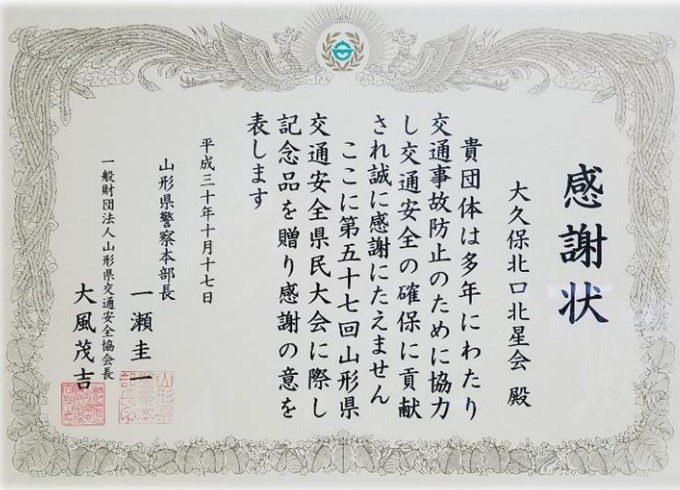 感謝状
大久保北口北星会 殿
貴団体は多年にわたり
交通事故防止のために協力
し交通安全の確保に貢献
され誠に感謝にたえません
ここに第五十七回山形県
交通安全県民大会に際し
記念品を贈り感謝の意を
表します
平成三十年十月十七日
山形県警察本部長
一瀬圭一
一般財団法人山形県交通安全協会長
大風茂吉